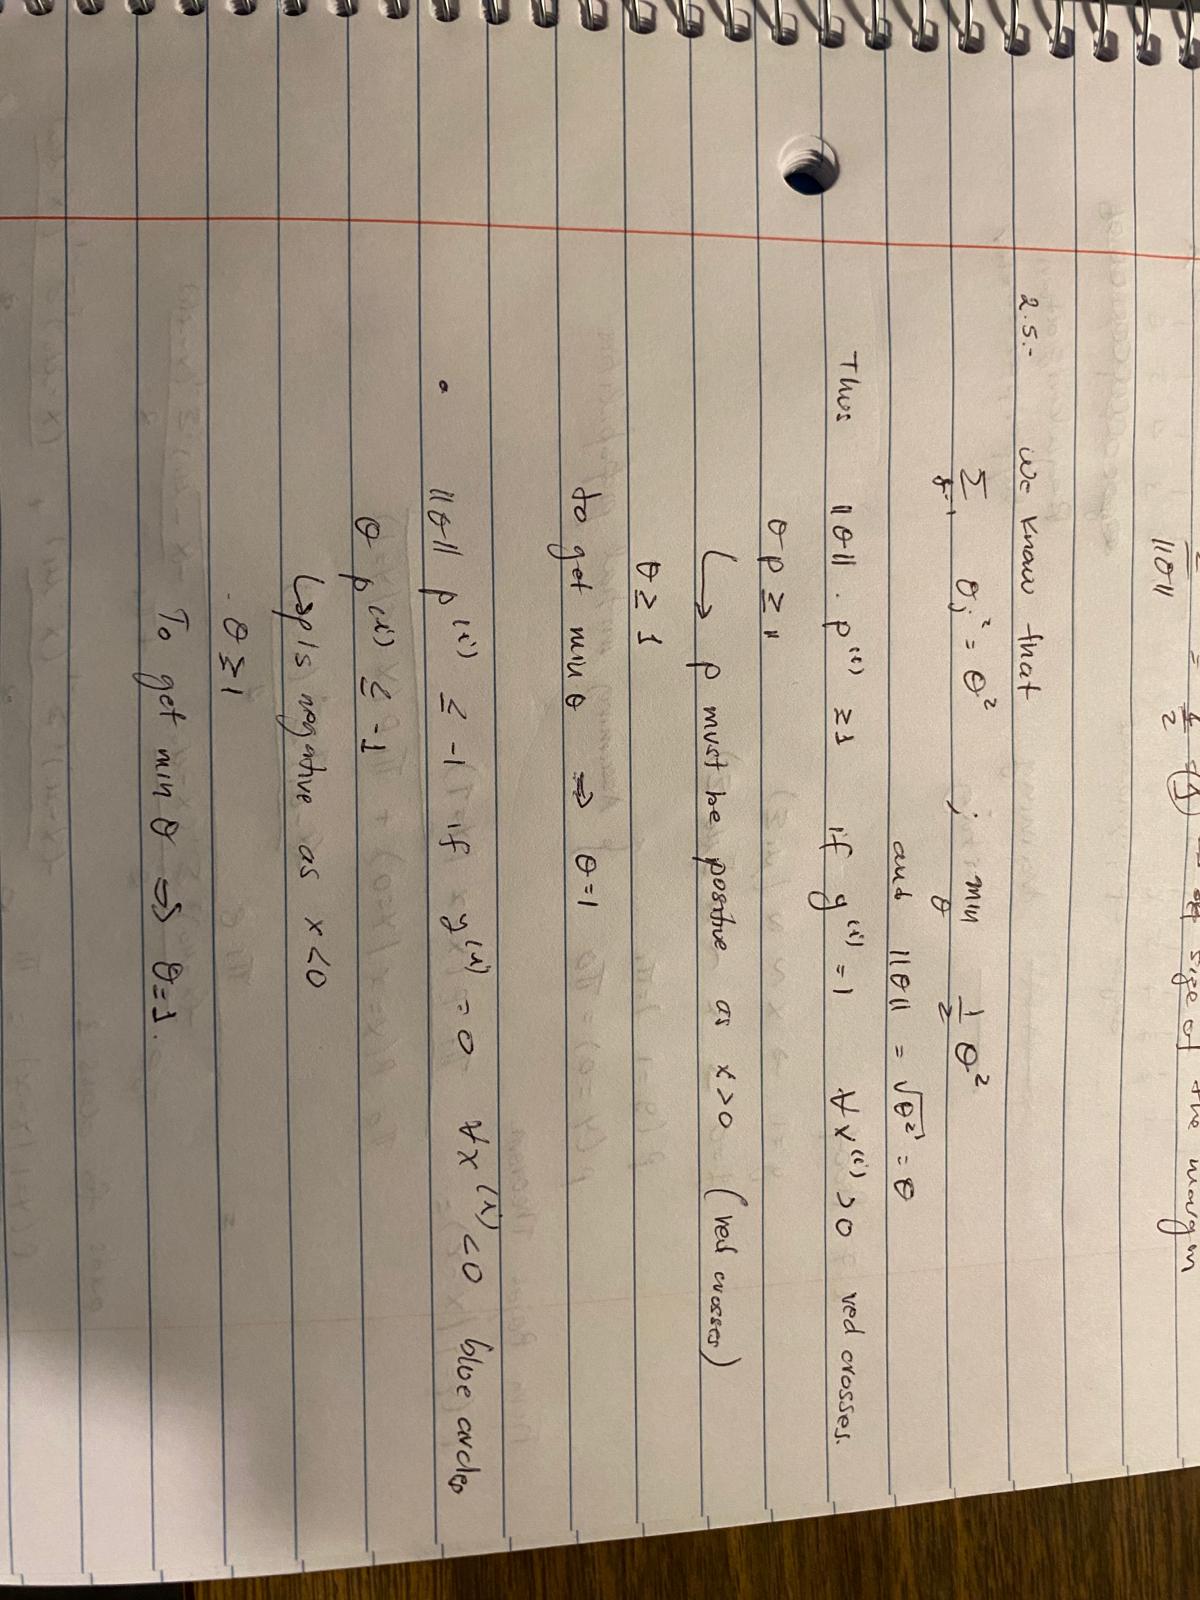 ||θ|| = 1/2 size of the margin
2.5:- We know that
Σ j=1 θj² = θ² , min θ 1/2 θ²
and ||θ|| = √θ² = θ
Thus ||θ|| . p⁽ⁱ⁾ ≥ 1 if y⁽ⁱ⁾ = 1 ∀ x⁽ⁱ⁾ > 0 red crosses.
θ p ≥ 1
↳ p must be positive as x > 0 (red crosses)
θ ≥ 1
to get min θ ⇒ θ = 1
• ||θ|| p⁽ⁱ⁾ ≤ -1 if y⁽ⁱ⁾ = 0 ∀ x⁽ⁱ⁾ < 0 blue circles
θ p⁽ⁱ⁾ ≤ -1
↳ p is negative as x < 0
θ ≥ 1
To get min θ ⇒ θ = 1.